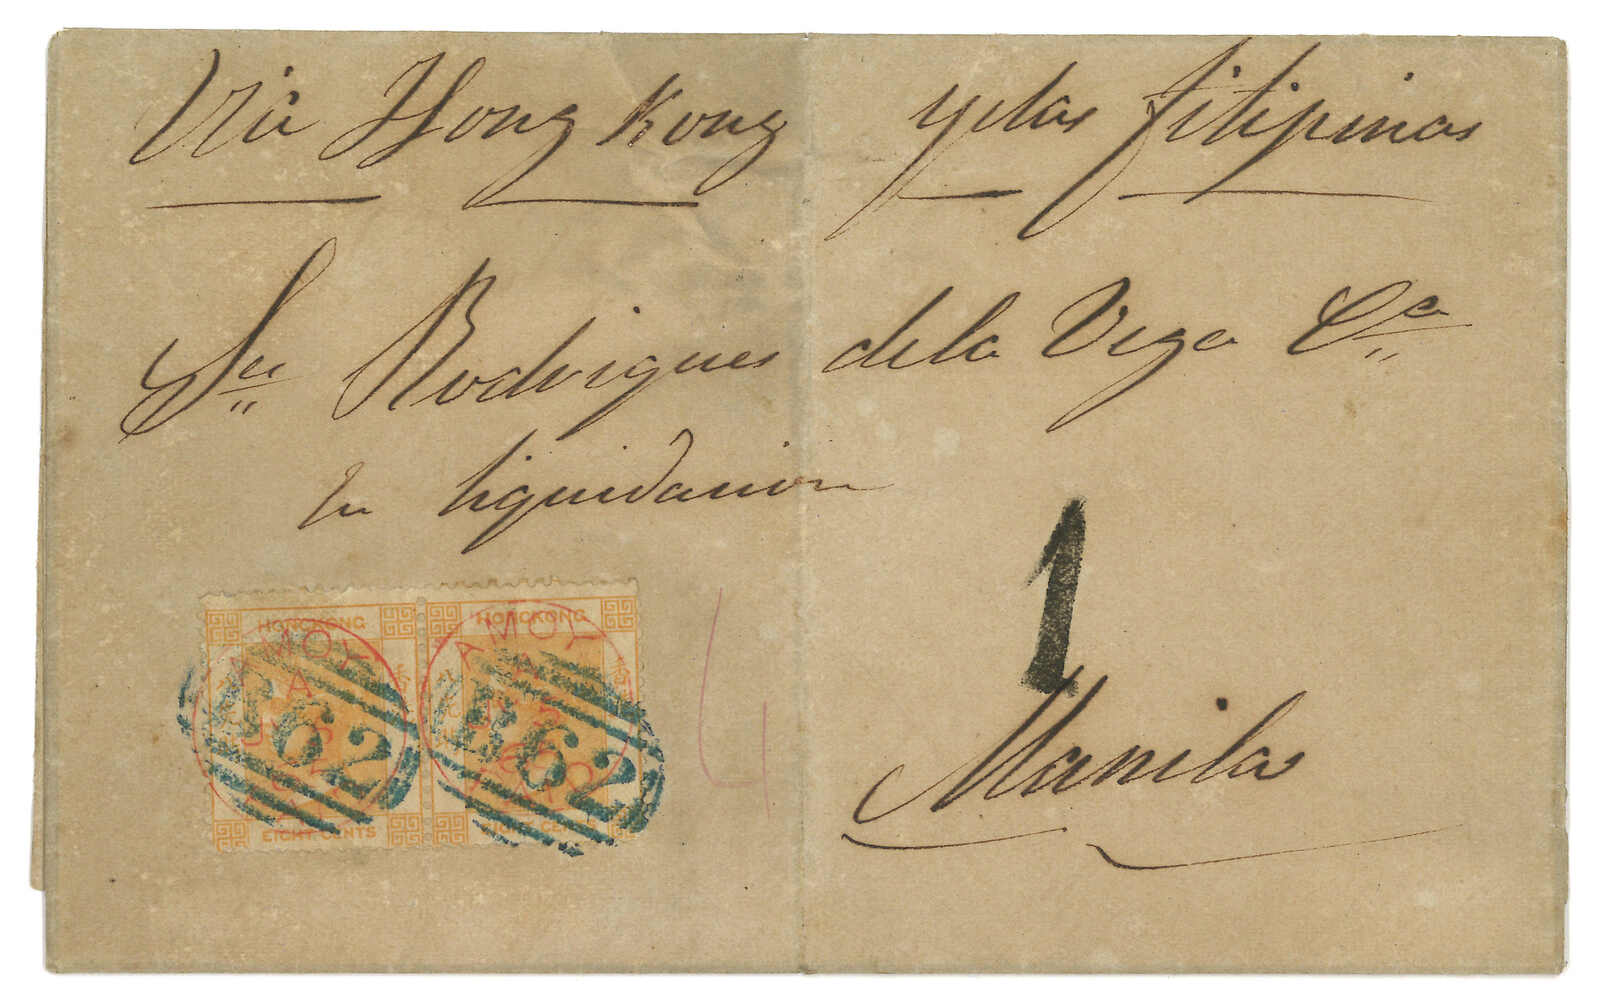 Via Hong Kong y elas filipinas
Rodrigues de la Vega Cª
En liquidacion
1
Manila
HONGKONG HONGKONG
AMOY AMOY
A A
B62 B62
EIGHT CENTS EIGHT CENTS